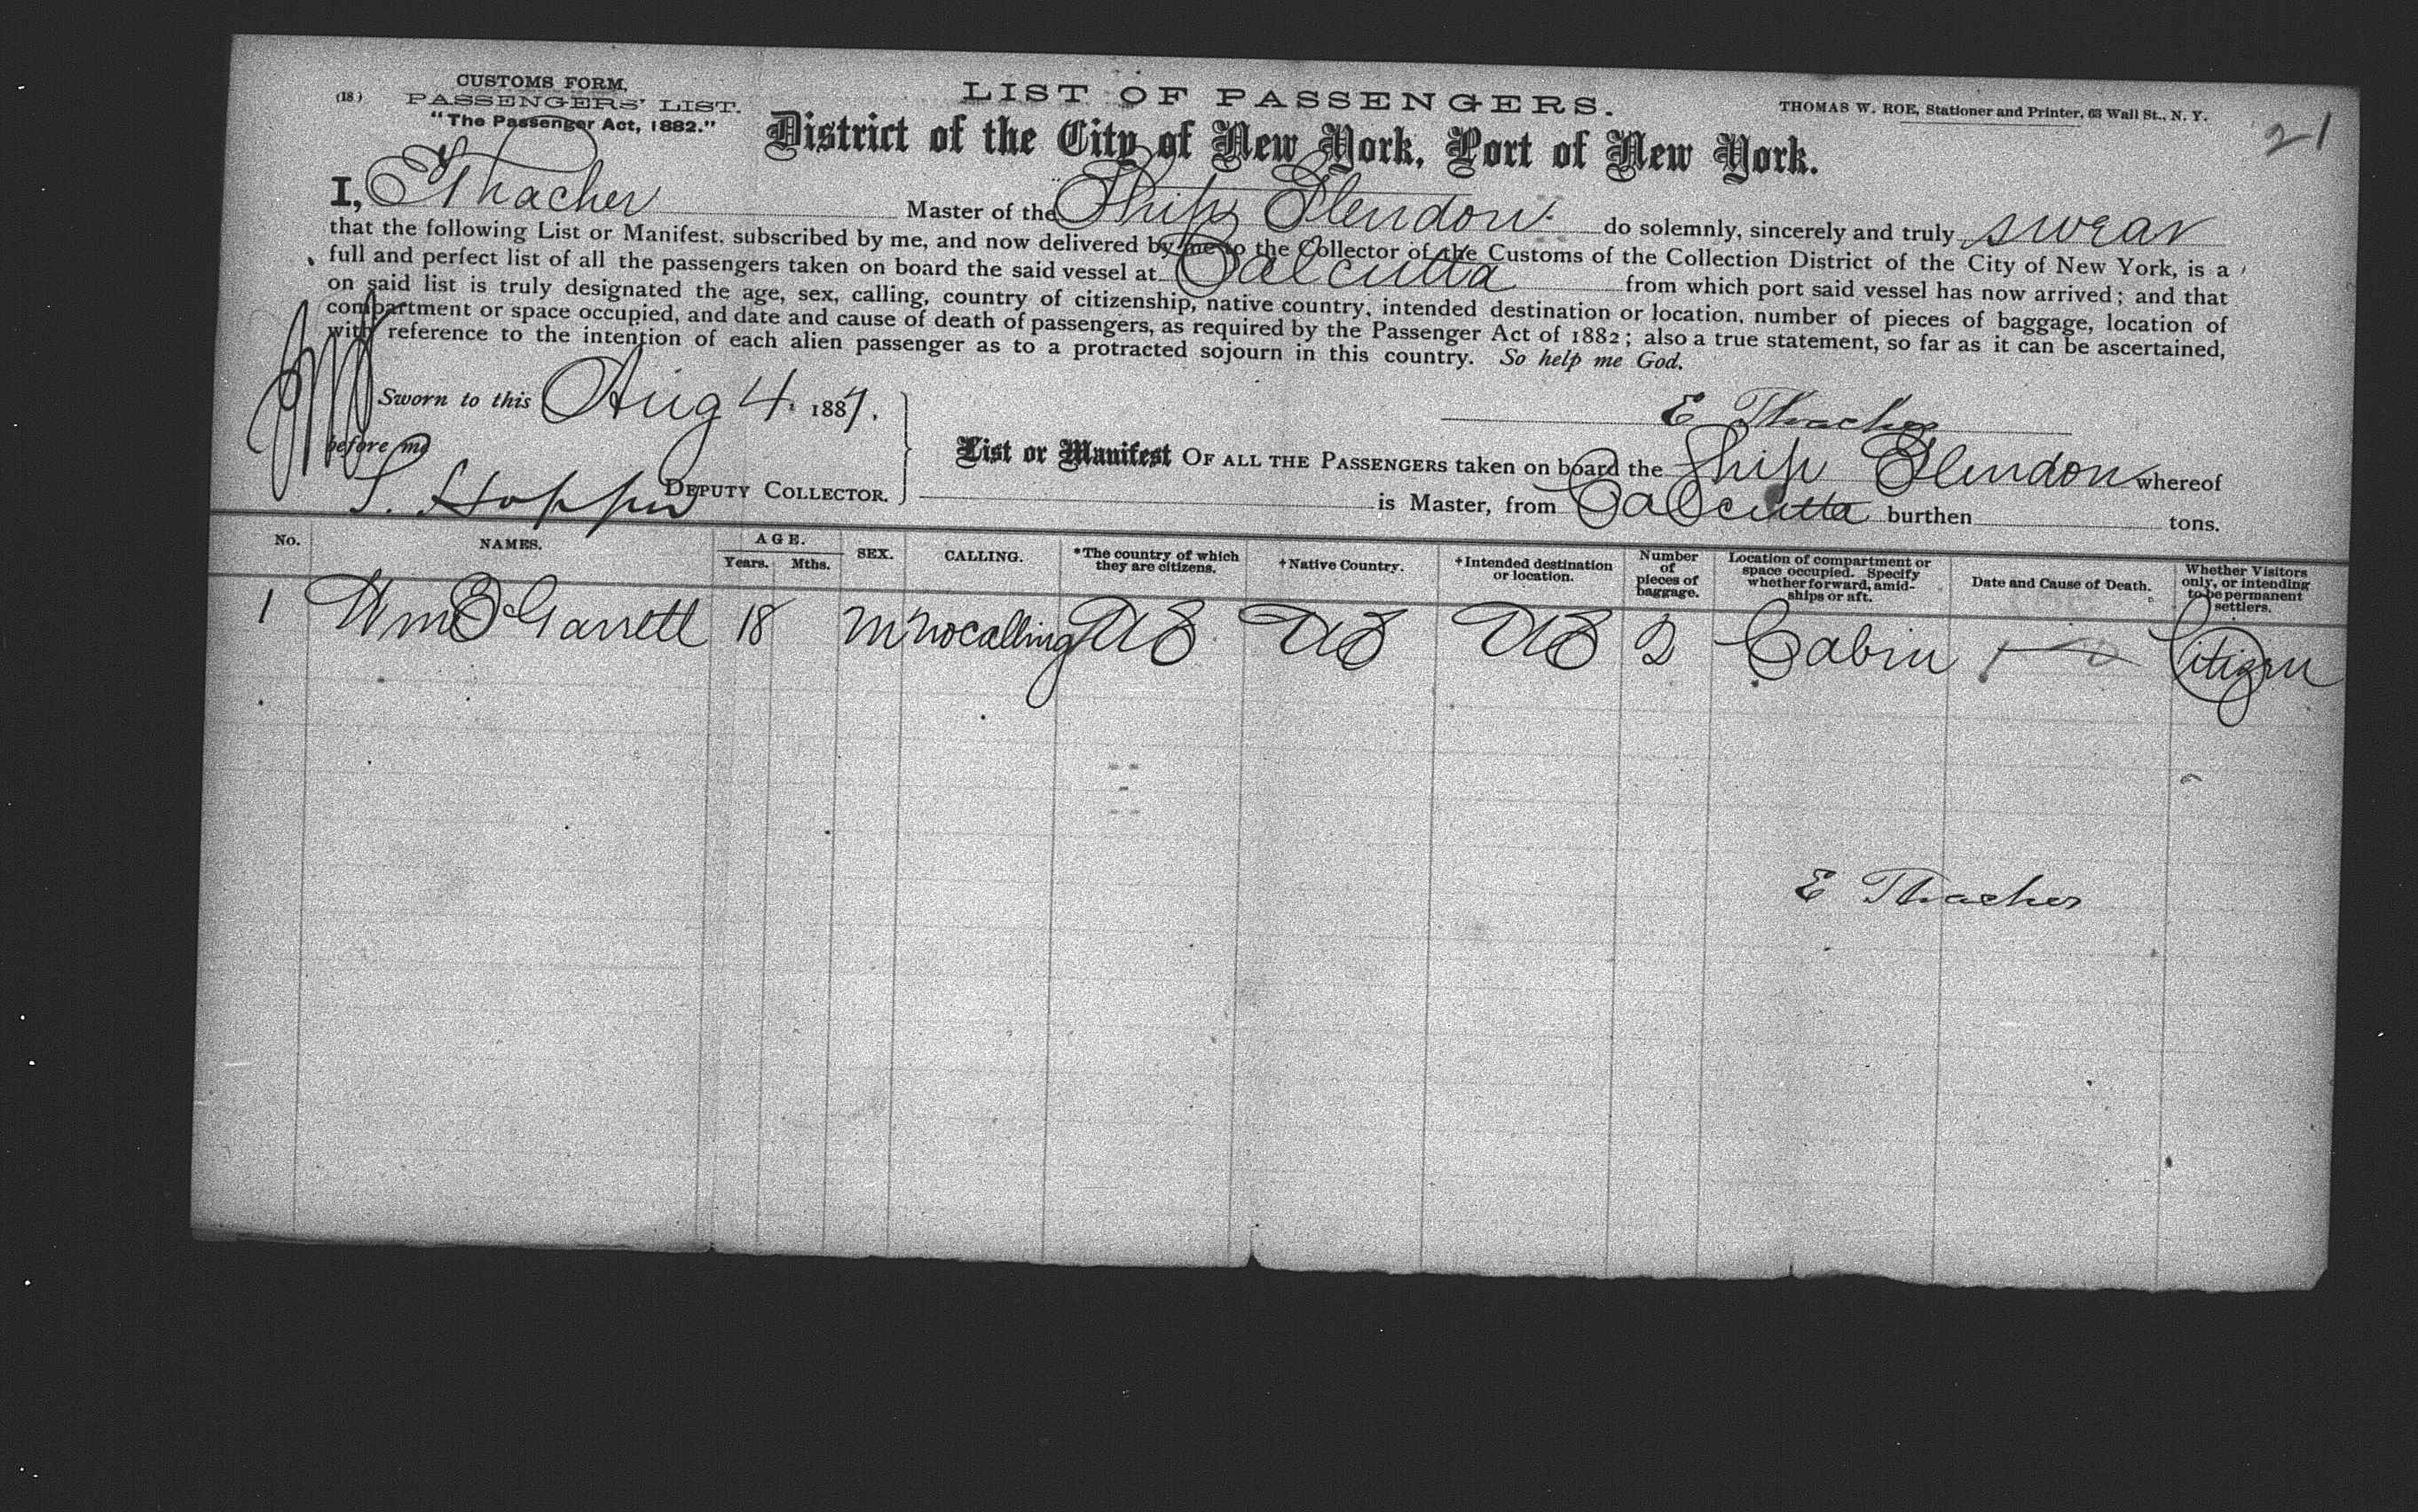 (18)
CUSTOMS FORM,
PASSENGERS' LIST.
"The Passenger Act, 1882."
LIST OF PASSENGERS.
THOMAS W. ROE, Stationer and Printer, 63 Wall St., N. Y.
21
District of the City of New York, Port of New York.
I, E Thacher Master of the Ship Glendon do solemnly, sincerely and truly swear
that the following List or Manifest, subscribed by me, and now delivered by me to the Collector of the Customs of the Collection District of the City of New York, is a
full and perfect list of all the passengers taken on board the said vessel at Calcutta from which port said vessel has now arrived; and that
on said list is truly designated the age, sex, calling, country of citizenship, native country, intended destination or location, number of pieces of baggage, location of
compartment or space occupied, and date and cause of death of passengers, as required by the Passenger Act of 1882; also a true statement, so far as it can be ascertained,
with reference to the intention of each alien passenger as to a protracted sojourn in this country. So help me God.
Sworn to this Aug 4. 1887.
E Thacher
before me
DEPUTY COLLECTOR.
List or Manifest OF ALL THE PASSENGERS taken on board the Ship Glendon whereof
is Master, from Calcutta burthen tons.
No. NAMES. AGE. Years. Mths. SEX. CALLING. *The country of which they are citizens. †Native Country. †Intended destination or location. Number of pieces of baggage. Location of compartment or space occupied. Specify whether forward, amidships or aft. Date and Cause of Death. Whether Visitors only, or intending to be permanent settlers.
1 Wm B Garrett 18 M no calling US US US 2 Cabin Citizen
E Thacher